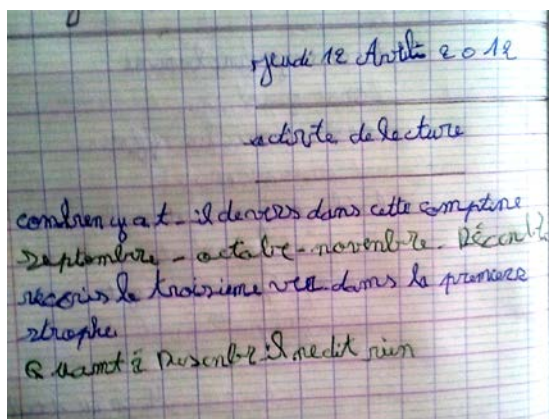 jeudi 12 Avrile 2012
activte de lecture
combren y a t-il de vers dans cette comptine
septembre - octobre - novenbre. Décenbre
récoris le troisieme vre dans la premeere
strophe
Quamt à Desenbre il ne dit rien